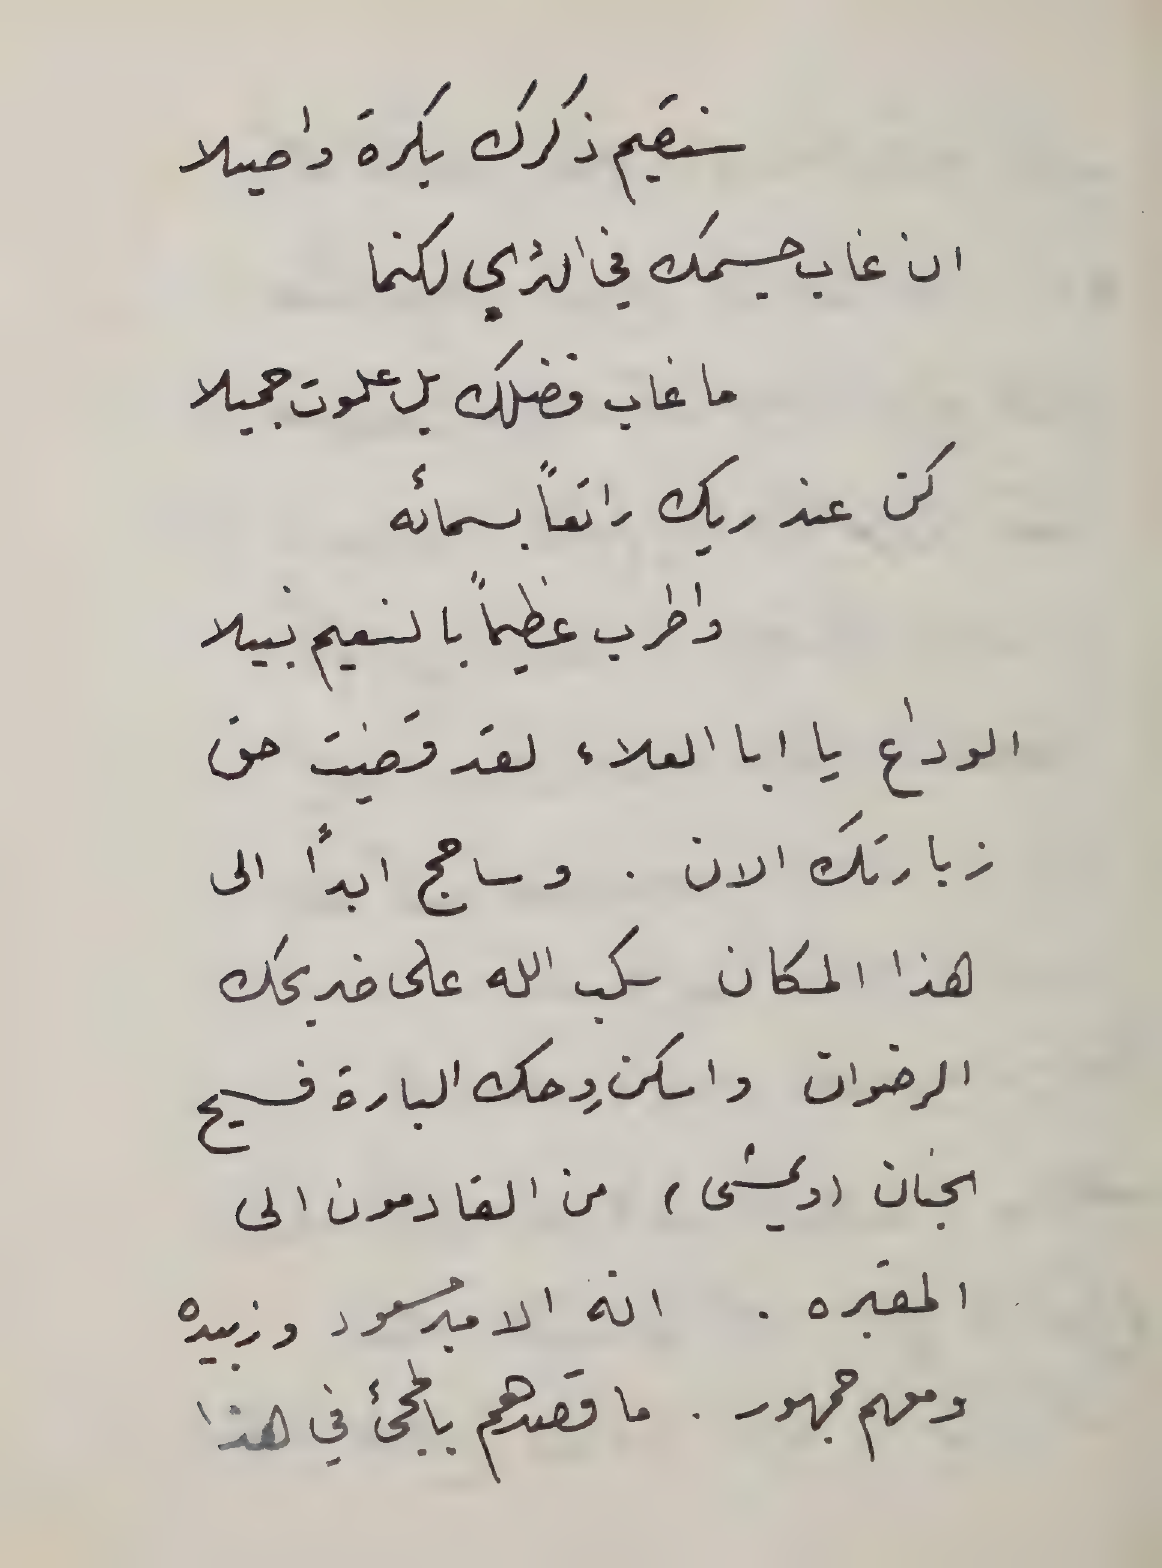 سنقيم ذكرك بكرة واصيلا
ان غاب جسمك في الثري لكنما
ما غاب فضلك بل علوت جميلا
كن عند ربك راتعاً بسمائه
واطرب عظيماً بالنعيم نبيلا
الوداع يا ابا العلاء لقد قضيت حق
زيارتك الان . وساحج ابداً الى
هذا المكان سكب الله على ضريحك
الرضوان واسكن روحك البارة فسيح
الجنان (ويمشى) من القادمون الى
المقبره . انه الامير مسعود وزبيده
ومعهم جمهور . ما قصدهم بالمجئ في هذا